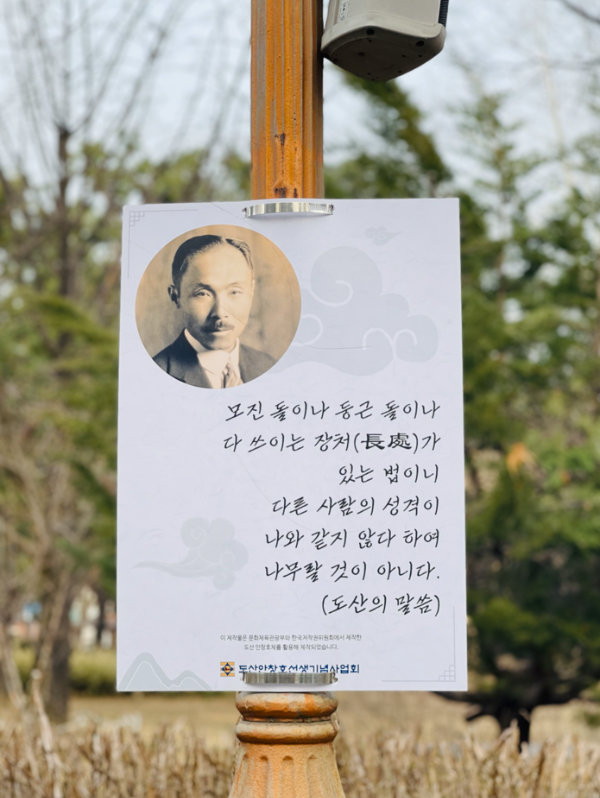 모진 돌이나 둥근 돌이나
다 쓰이는 장처(長處)가
있는 법이니
다른 사람의 성격이
나와 같지 않다 하여
나무랄 것이 아니다.
(도산의 말씀)
이 제작물은 문화체육관광부와 한국저작권위원회에서 제작한
도산 안창호체를 활용해 제작되었습니다.
도산안창호선생기념사업회